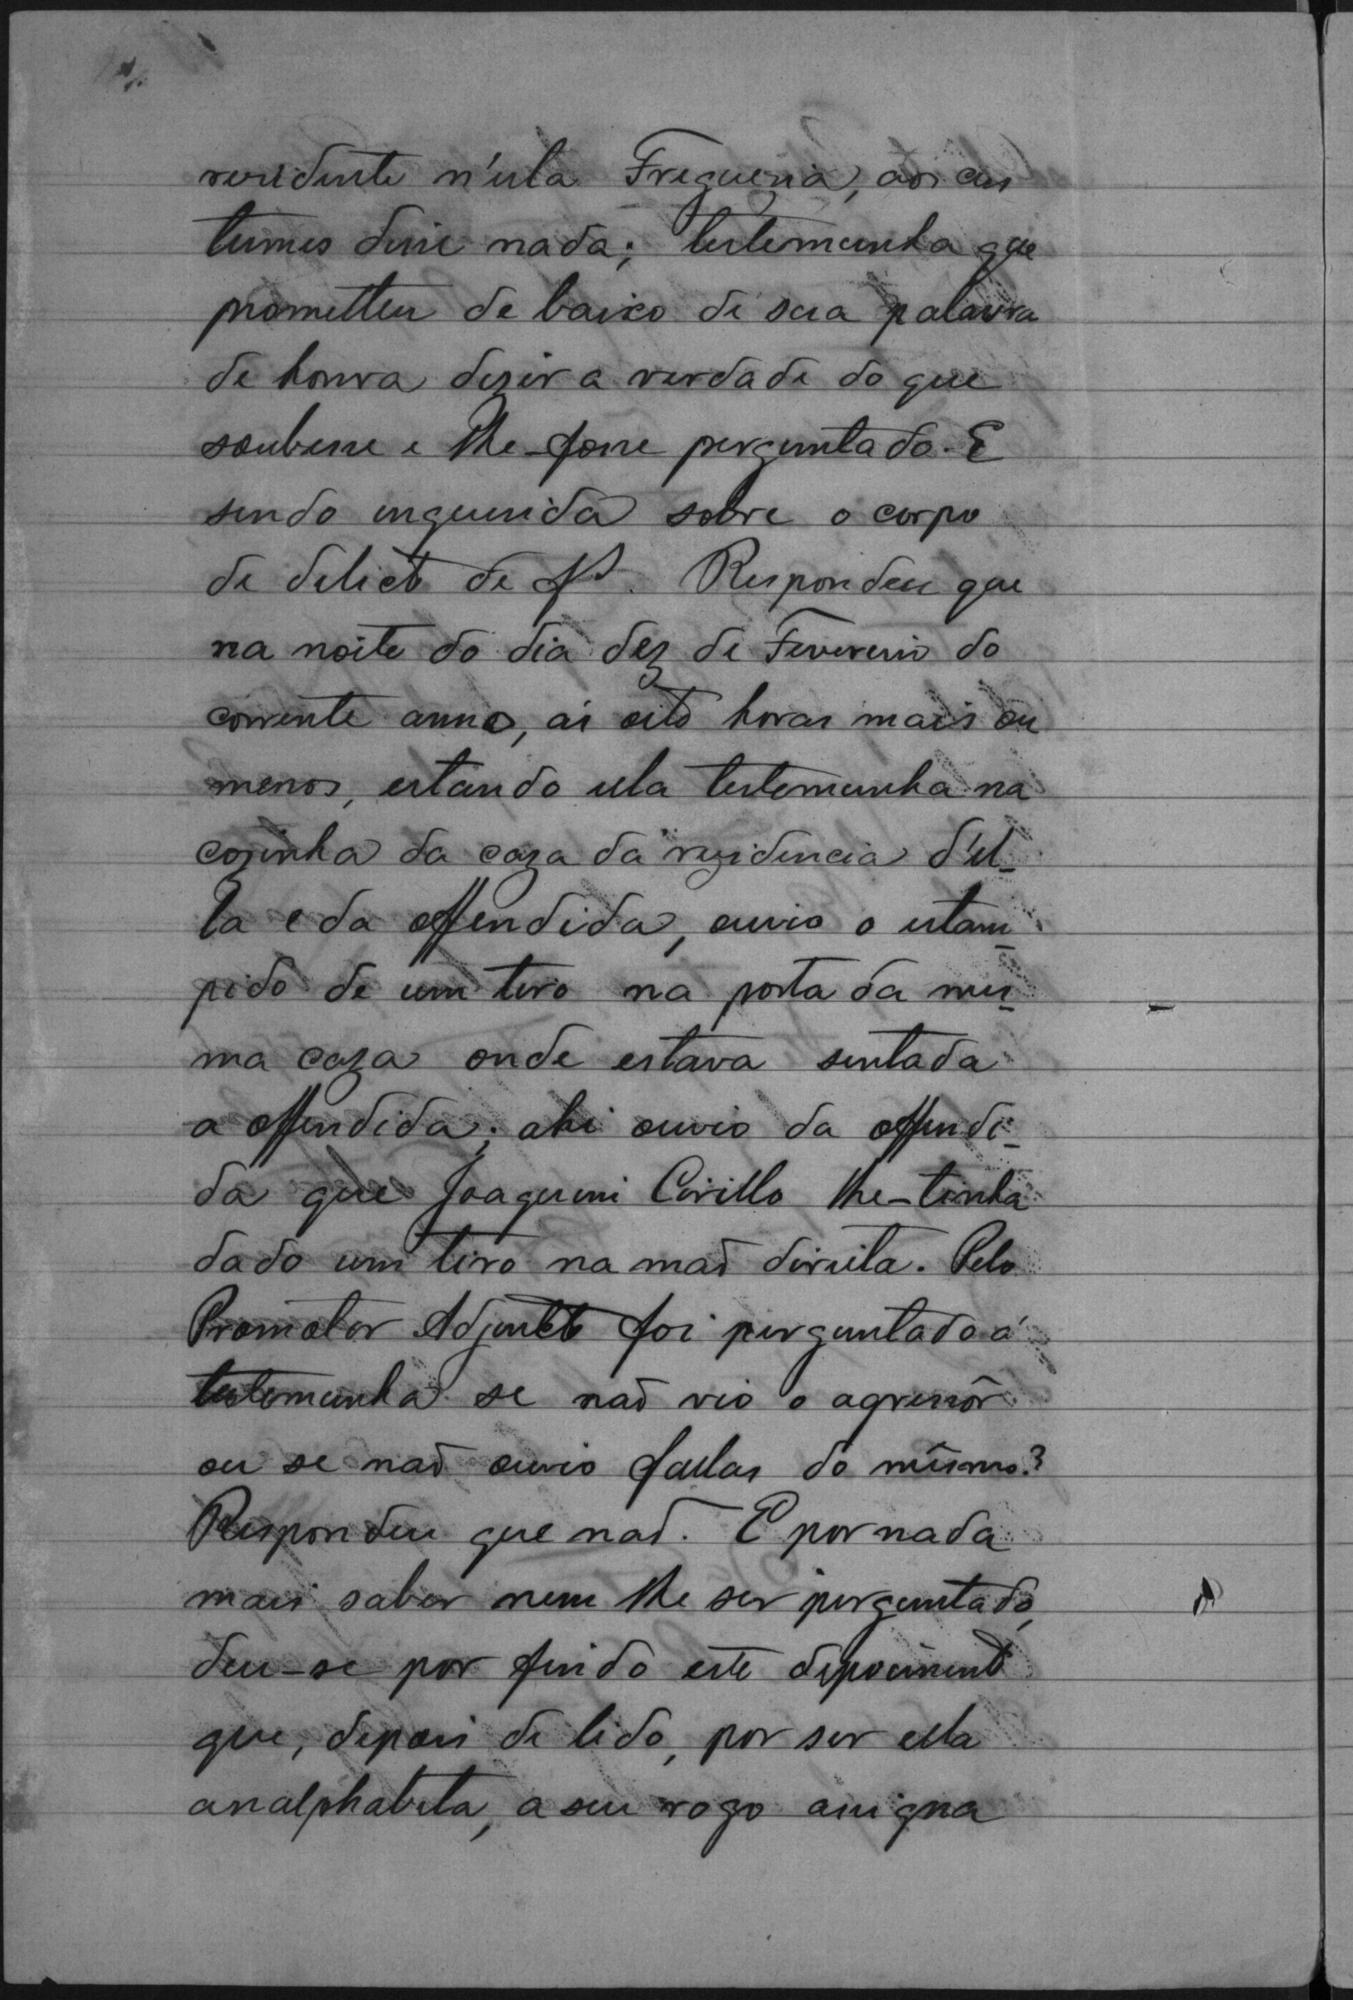 residente n'esta Freguesia, aos cus
tumes disse nada; testemunha que
prometteu de baixo de sua palavra
de honra dizer a verdade do que
soubesse e lhe-fosse perguntado. E
sendo inquerida sobre o corpo
de delicto de fs. Respondeu que
na noite do dia dez de Fevereiro do
corrente anno, ás oito horas mais ou
menos, estando ella testemunha na
cozinha da caza da rezidencia d'el-
la e da offendida, ouvio o estam-
pido de um tiro na porta da mes-
ma caza onde estava sentada
a offendida; ahi ouvio da offendi-
da que Joaquim Cirillo lhe-tinha
dado um tiro na maõ direita. Pelo
Promotor Adjuncto foi perguntado á
testemunha se naõ vio o agressôr
ou se naõ ouvio fallas do mesmo?
Respondeu que naõ. E por nada
mais saber nem lhe ser perguntado,
deu-se por findo este depoimento
que, depois de lido, por ser ella
analphabeta, a seu rogo assigna